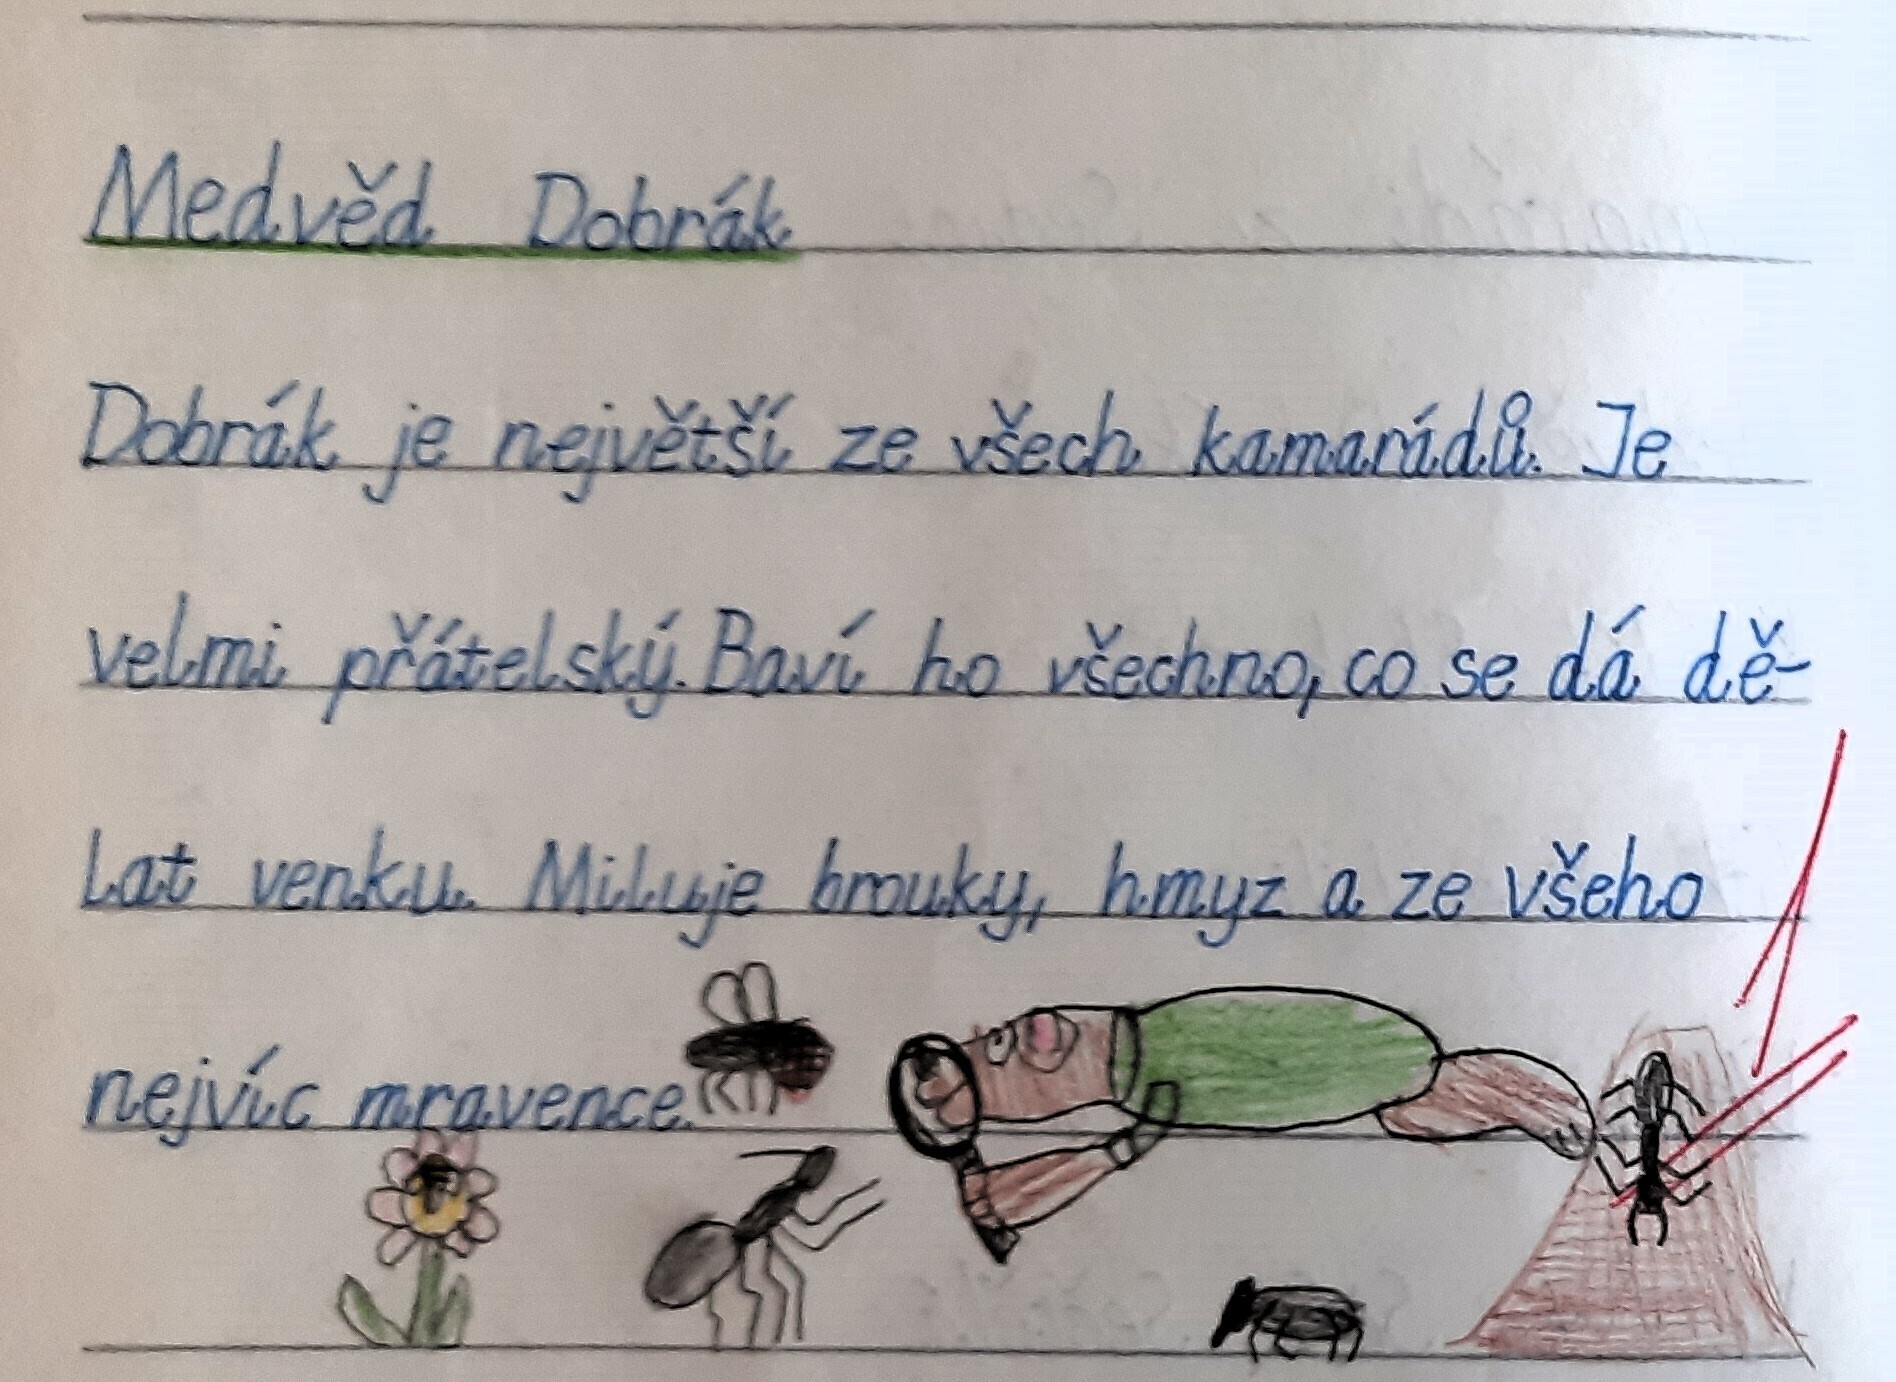 Medvěd Dobrák
Dobrák je největší ze všech kamarádů. Je
velmi přátelský. Baví ho všechno, co se dá dě-
lat venku. Miluje brouky, hmyz a ze všeho
nejvíc mravence.
1